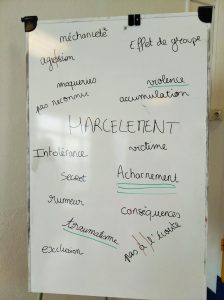 méchanceté
Effet de groupe
agression
moqueries
violence
pas reconnu
accumulation
HARCELEMENT
Intolérance
victime
Secret
Acharnement
rumeur
conséquences
traumatisme
pas à l'écoute
exclusion